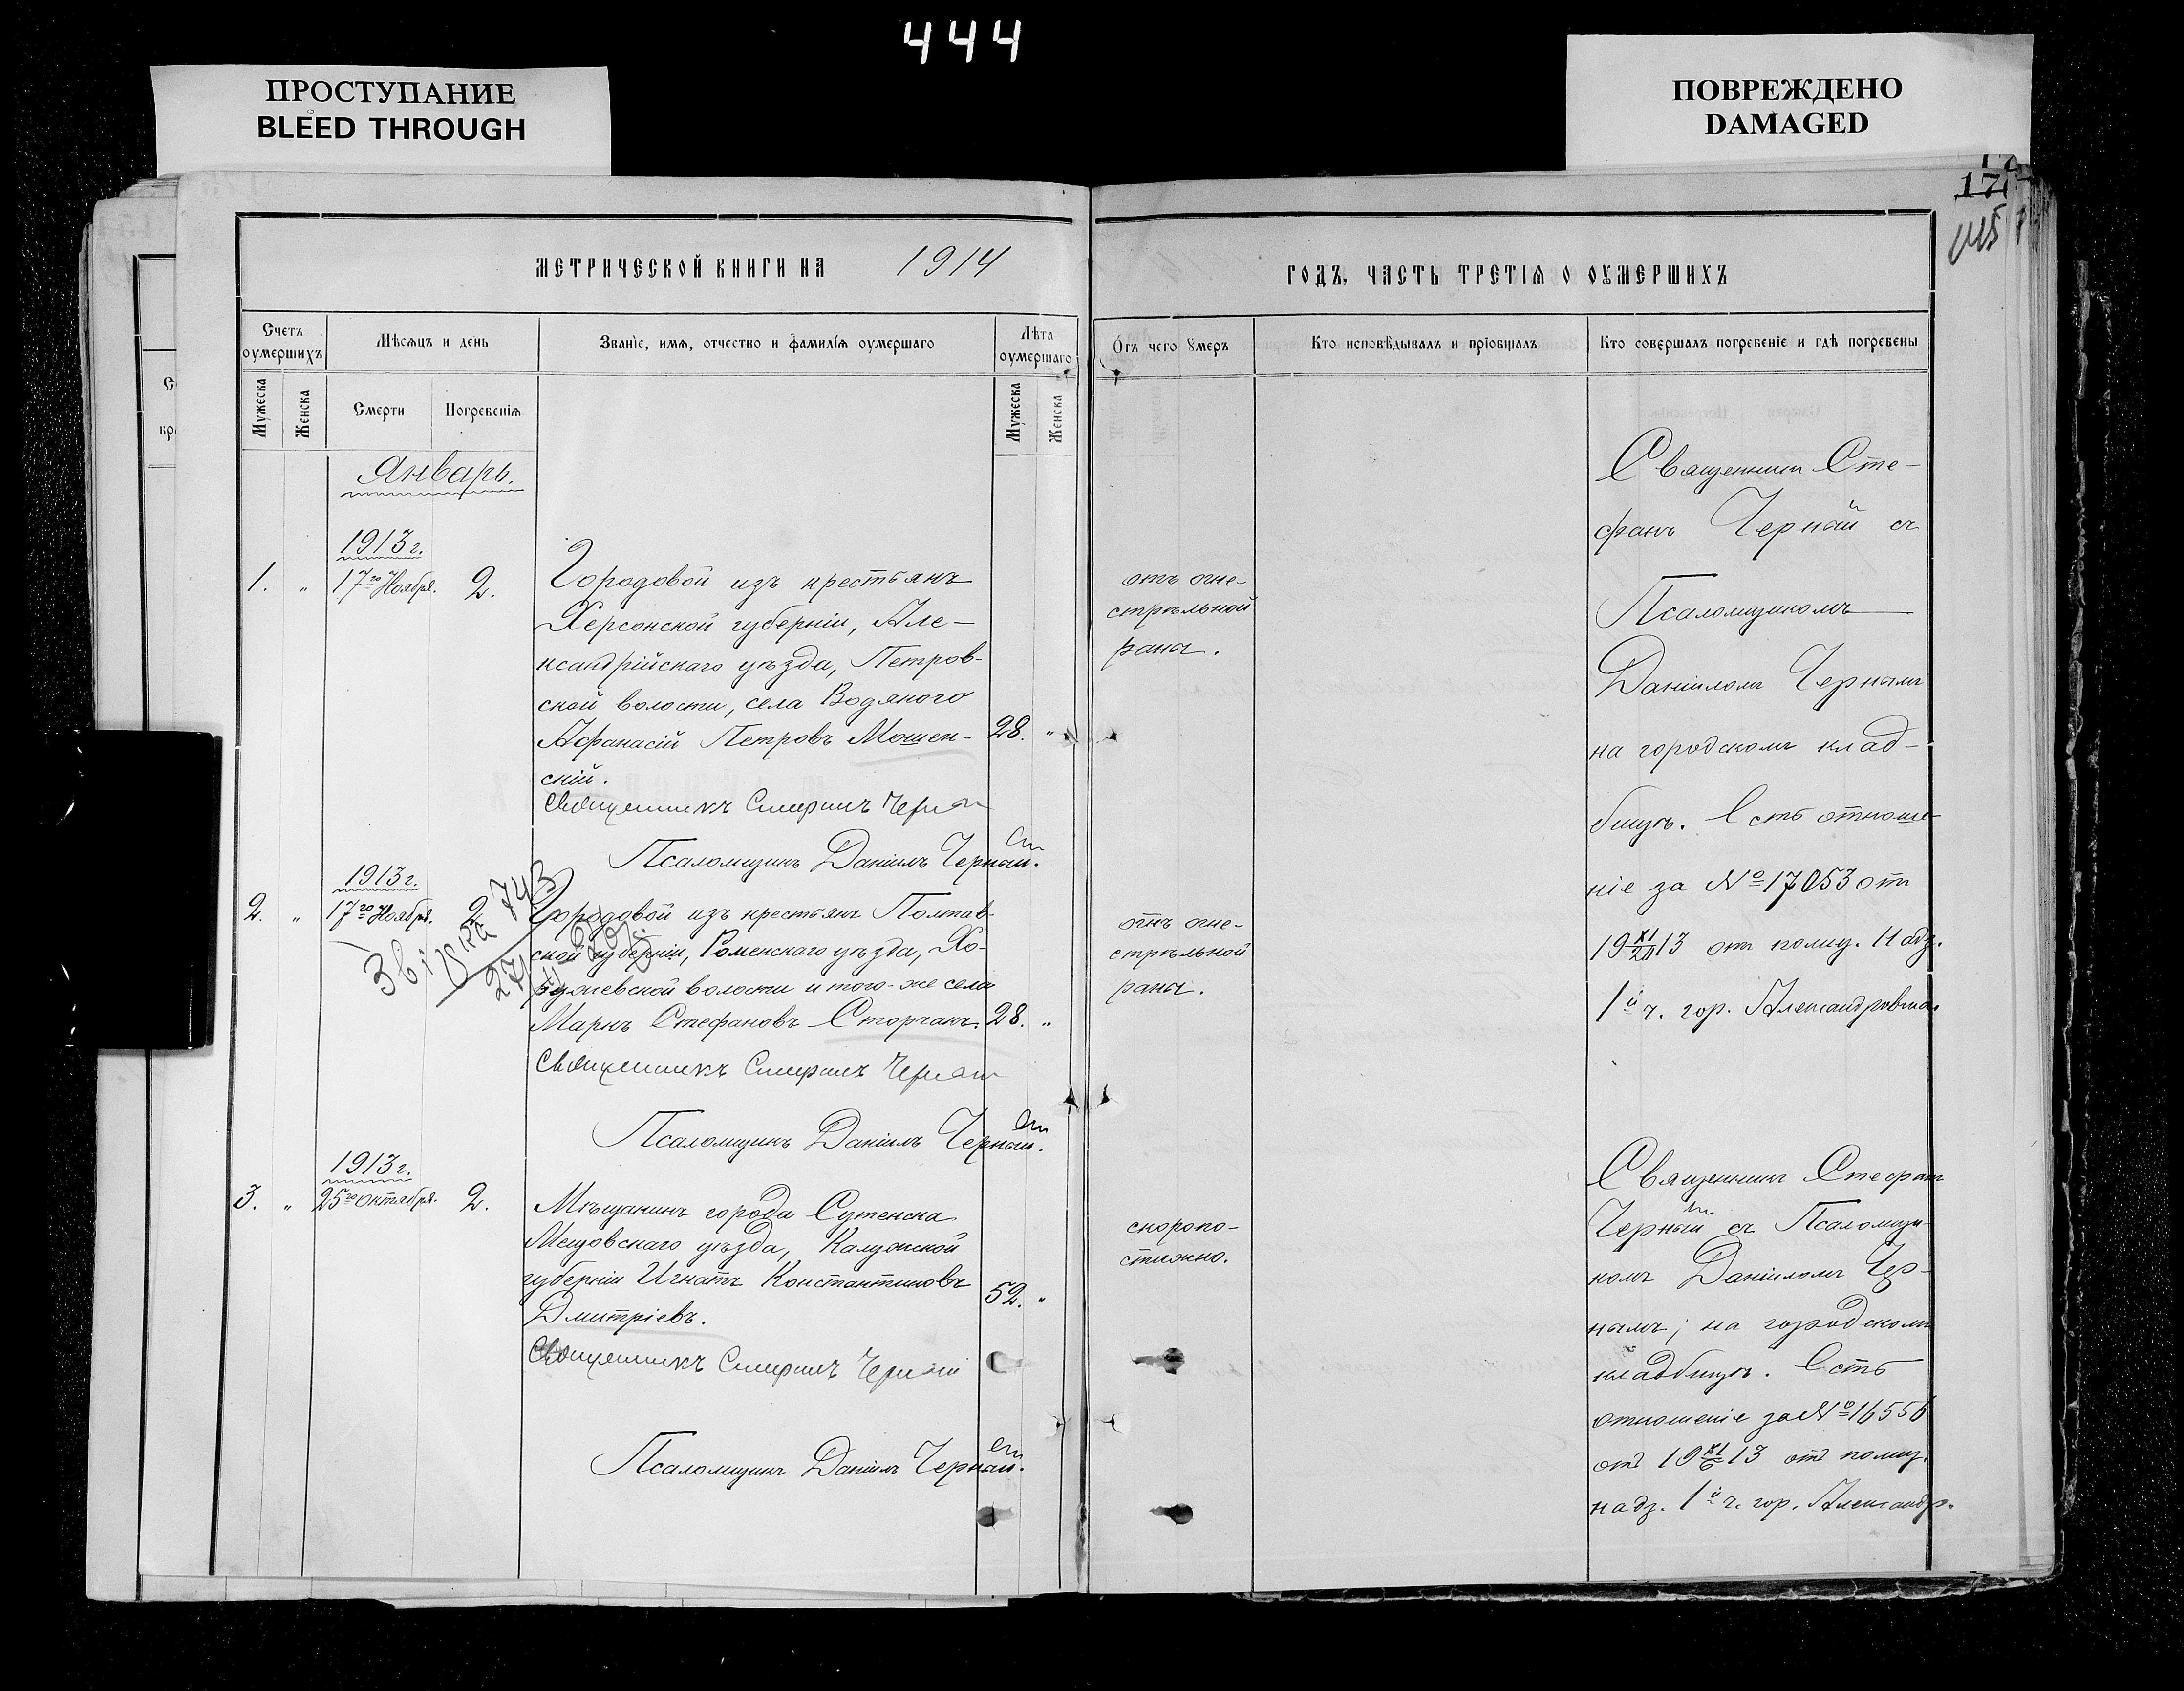 444
ПРОСТУПАНИЕ
BLEED THROUGH
ПОВРЕЖДЕНО
DAMAGED
171
МЕТРИЧЕСКОЙ КНИГИ НА 1914
ГОДЪ, ЧАСТЬ ТРЕТІѦ О ОУМЕРШИХЪ
Счетъ оумершихъ
Мѣсѧцъ и день
Званіе, имѧ, отчество и фамиліѧ оумершаго
Лѣта оумершаго
Отъ чего умеръ
Кто исповѣдывалъ и пріобщалъ
Кто совершалъ погребеніе и гдѣ погребены
Мужеска
Женска
Смерти
Погребеніѧ
Мужеска
Женска
Январь.
1913 г.
1. " 17го Ноября. 2.
Городовой изъ крестьянъ
Херсонской губерніи, Але-
ксандрійскаго уѣзда, Петров-
ской волости, села Водяного
Афанасій Петровъ Мошен- 28. "
скій.
Священникъ Стефанъ Черный
Псаломщикъ Даніилъ Черный.
отъ огне-
стрѣльной
раны.
Священникъ Сте-
фанъ Черный съ
Псаломщикомъ
Даніиломъ Чернымъ
на городскомъ клад-
бищѣ. Есть отноше-
ніе за № 17053 отъ
19 XI/20 13 отъ полиц. Надз.
1й ч. гор. Александровска
1913 г.
2. " 17го Ноября. 2.
Городовой изъ крестьянъ Полтав-
ской губерніи, Роменскаго уѣзда, Хо-
ружевской волости и того-же села
Маркъ Стефановъ Сторчакъ. 28. "
Священникъ Стефанъ Черный
Псаломщикъ Даніилъ Черный.
743
отъ огне-
стрѣльной
раны.
1913 г.
3. " 25го Октября. 2.
Мѣщанинъ города Сутенска
Мещовскаго уѣзда, Калужской
губерніи Игнатъ Константиновъ
Дмитріевъ. 52. "
Священникъ Стефанъ Черный
Псаломщикъ Даніилъ Черный.
скоропо-
стижно.
Священникъ Стефанъ
Черный съ Псаломщи-
комъ Даніиломъ Чер-
нымъ; на городскомъ
кладбищѣ. Есть
отношеніе за № 16556
отъ 19 XI/6 13 отъ полиц.
надз. 1й ч. гор. Александр.